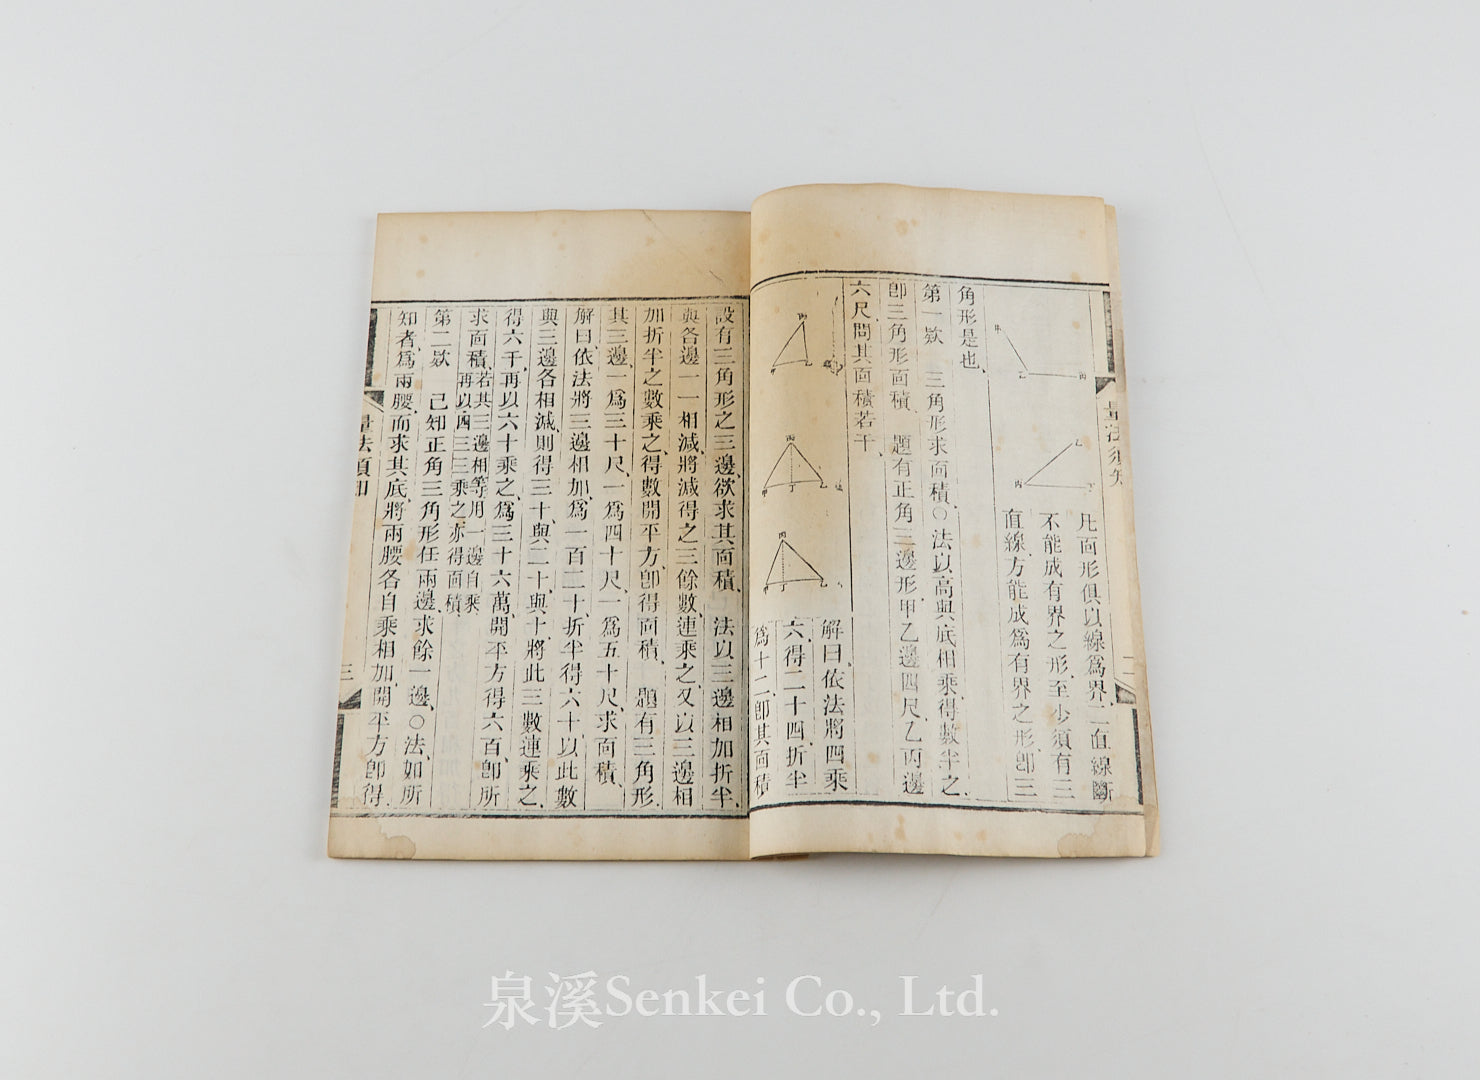 量法須知
二
甲
乙
丙
乙
丙
丁
凡面形俱以線爲界、二直線斷
不能成有界之形、至少須有三
直線、方能成爲有界之形、卽三
角形是也、
第一欵　三角形求面積、○法以高與底相乘、得數半之、
卽三角形面積、　題有正角三邊形、甲乙邊四尺、乙丙邊
六尺、問其面積若干、
丙
甲
乙
丙
甲
丁
乙
丙
甲
丁
乙
解曰、依法將四乘
六、得二十四、折半
爲十二、卽其面積
設有三角形之三邊、欲求其面積、　法以三邊相加折半、
與各邊一一相減、將減得之三餘數、連乘之、又以三邊相
加折半之數乘之、得數開平方、卽得面積、　題有三角形、
其三邊、一爲三十尺、一爲四十尺、一爲五十尺、求面積、
解曰、依法將三邊相加、爲一百二十、折半得六十、以此數
與三邊各相減、則得三十、與二十、與十、將此三數連乘之、
得六千、再以六十乘之、爲三十六萬、開平方得六百、卽所
求面積、若其三邊相等、用一邊自乘、
再以四三三乘之、亦得面積、
第二欵　已知正角三角形任兩邊、求餘一邊、○法、如所
知者、爲兩腰、而求其底、將兩腰各自乘相加、開平方卽得、
量法須知
三
泉溪Senkei Co., Ltd.